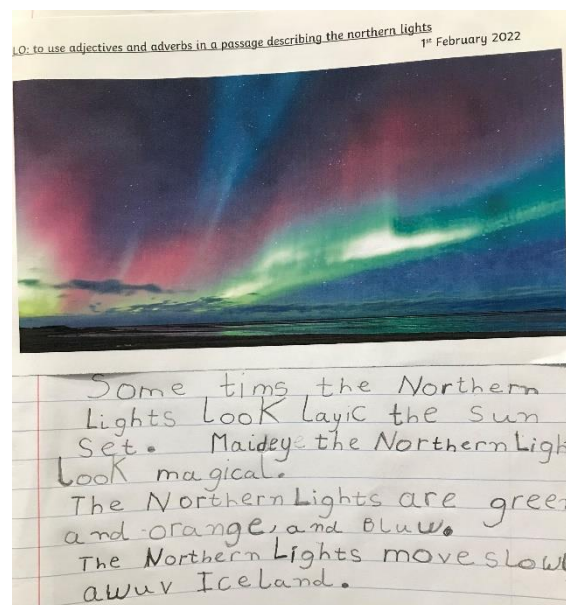 LO: to use adjectives and adverbs in a passage describing the northern lights
1st February 2022
Some tims the Northern
Lights Look Layic the sun
set. Maideye the Northern Ligh
Look magical.
The Northern Lights are gree
and orange, and Bluw.
The Northern Lights move slow
awuv Iceland.